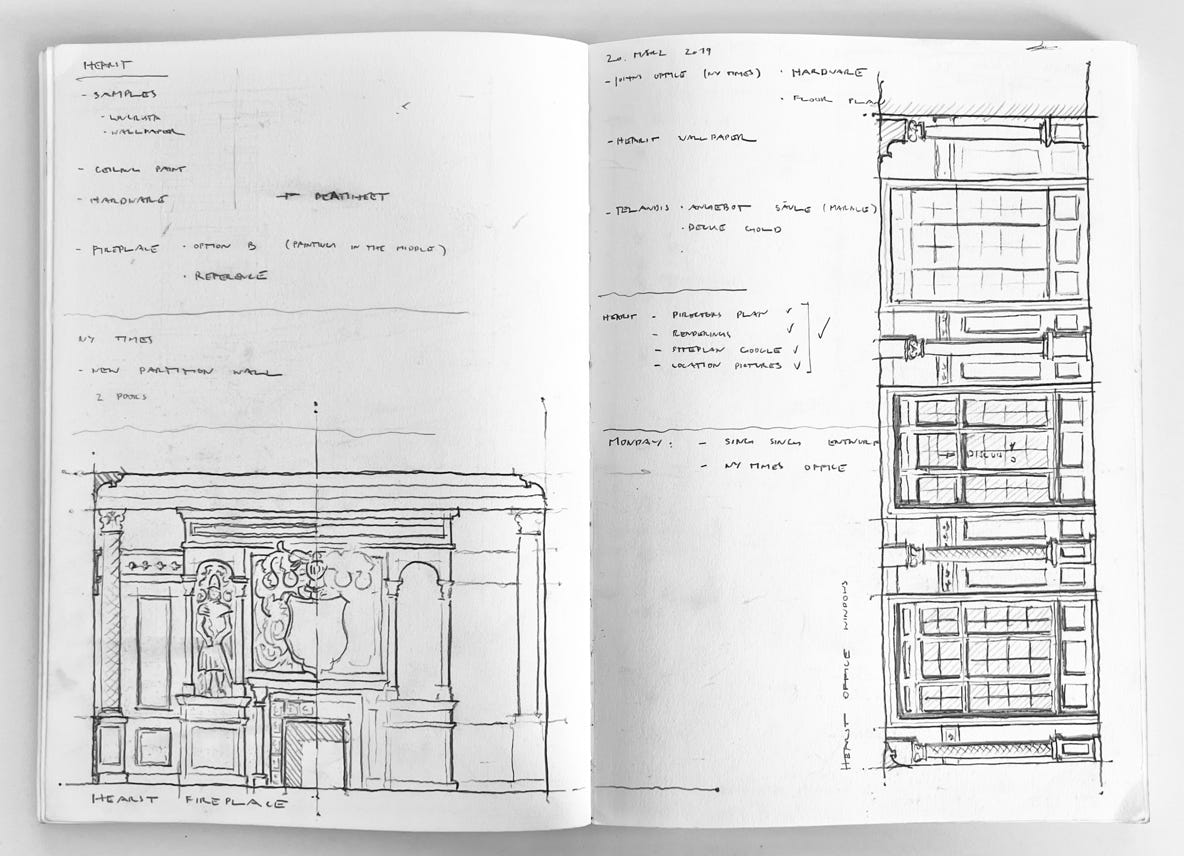 HEARST
- SAMPLES
· LINCRUSTA
· WALLPAPER
- CEILING PAINT
- HARDWARE
- FIREPLACE · OPTION B (PAINTING IN THE MIDDLE)
· REFERENCE
NY TIMES
- NEW PARTITION WALL
2 DOORS
HEARST FIREPLACE
20. MÄRZ 2019
- JOHNS OFFICE (NY TIMES) · HARDWARE
· FLOOR PLAN
- HEARST WALLPAPER
- TELANDIS · ANGEBOT SÄULE (MARMLE)
· DECKE GOLD
HEARST - DIRECTORS PLAN ✓
- RENDERINGS ✓
- SITEPLAN GOOGLE ✓
- LOCATION PICTURES ✓
✓
MONDAY: - SING SING ENTWURF
- NY TIMES OFFICE
HEARST OFFICE WINDOWS